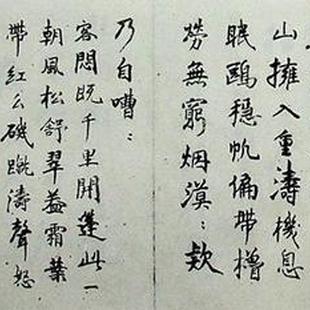 山擁入重濤機息
眠鷗穩帆偏帶櫓
勞無窮烟漠〻欸
乃自嘈〻
客悶既千里開蓬此一
朝風松舒翠蓋霜葉
帶紅磯跳濤聲怒